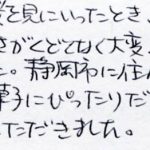 を見にいったとき、
さがくどくなく大変、
た。静岡市に住ん
菓子にぴったりだ
ただきました。